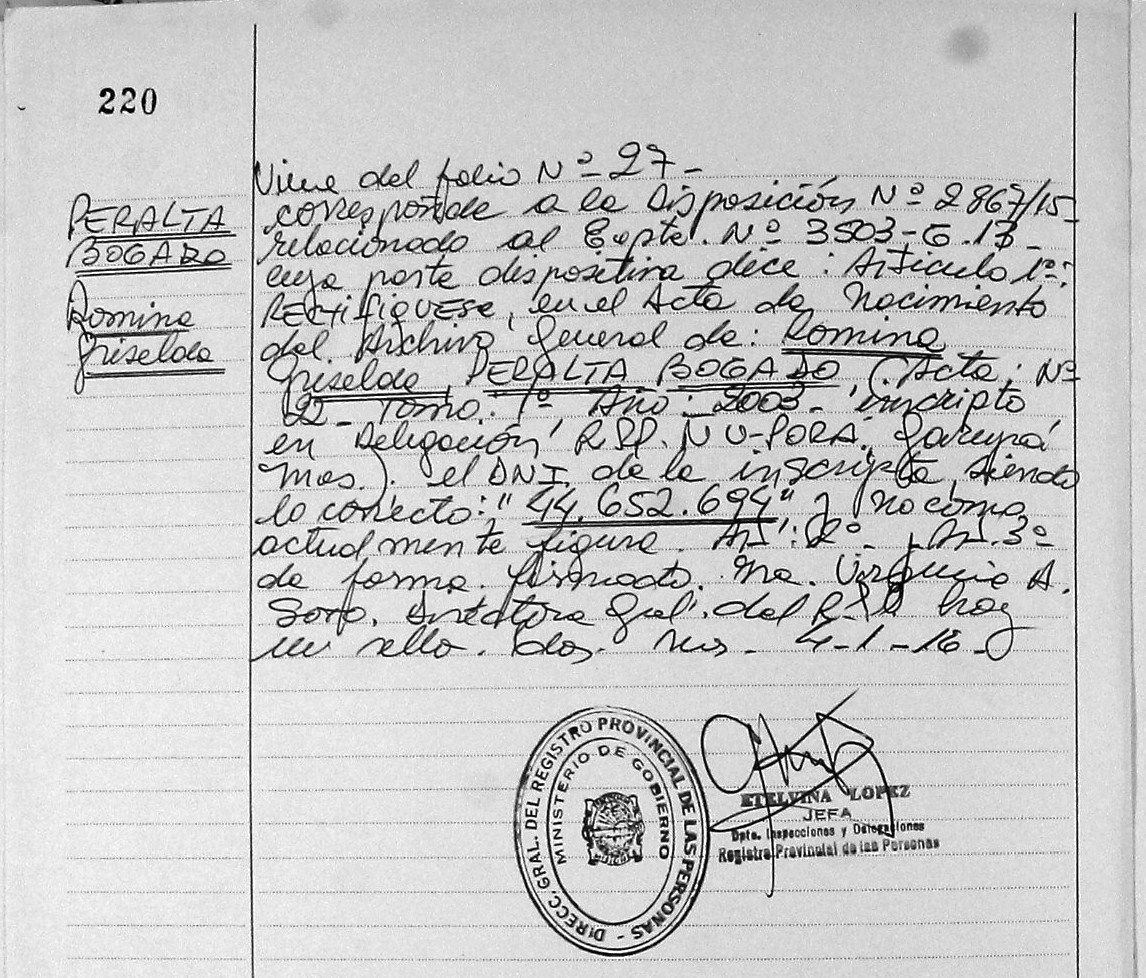 220
PERALTA
BOGADO
Romina
Griselda
Viene del folio Nº 27-
corresponde a la Disposición Nº 2867/15-
relacionado al Expte. Nº 3503-G-13-
cuya parte dispositiva dice: Artículo 1º:
RECTIFIQUESE, en el Acta de Nacimiento
del Archivo General de: Romina
Griselda PERALTA BOGADO, (Acta: Nº
22- Tomo: 1º Año: 2003- inscripta
en Delegación R.P.P. ÑU-PORÁ, Garupá
Mnes.). el DNI. de la inscripta, siendo
lo correcto: "44.652.694" y no como
actualmente figura. Art: 2º- Art. 3º
de forma. Firmado. Ma. Virginia A.
Soto. Directora Gral. del R.P.P. hay
un sello. Pdas. Mnes. 4-1-16-
DIRECC. GRAL. DEL REGISTRO PROVINCIAL DE LAS PERSONAS -
MINISTERIO DE GOBIERNO
ETELVINA LOPEZ
JEFA
Dpto. Inspecciones y Delegaciones
Registro Provincial de las Personas